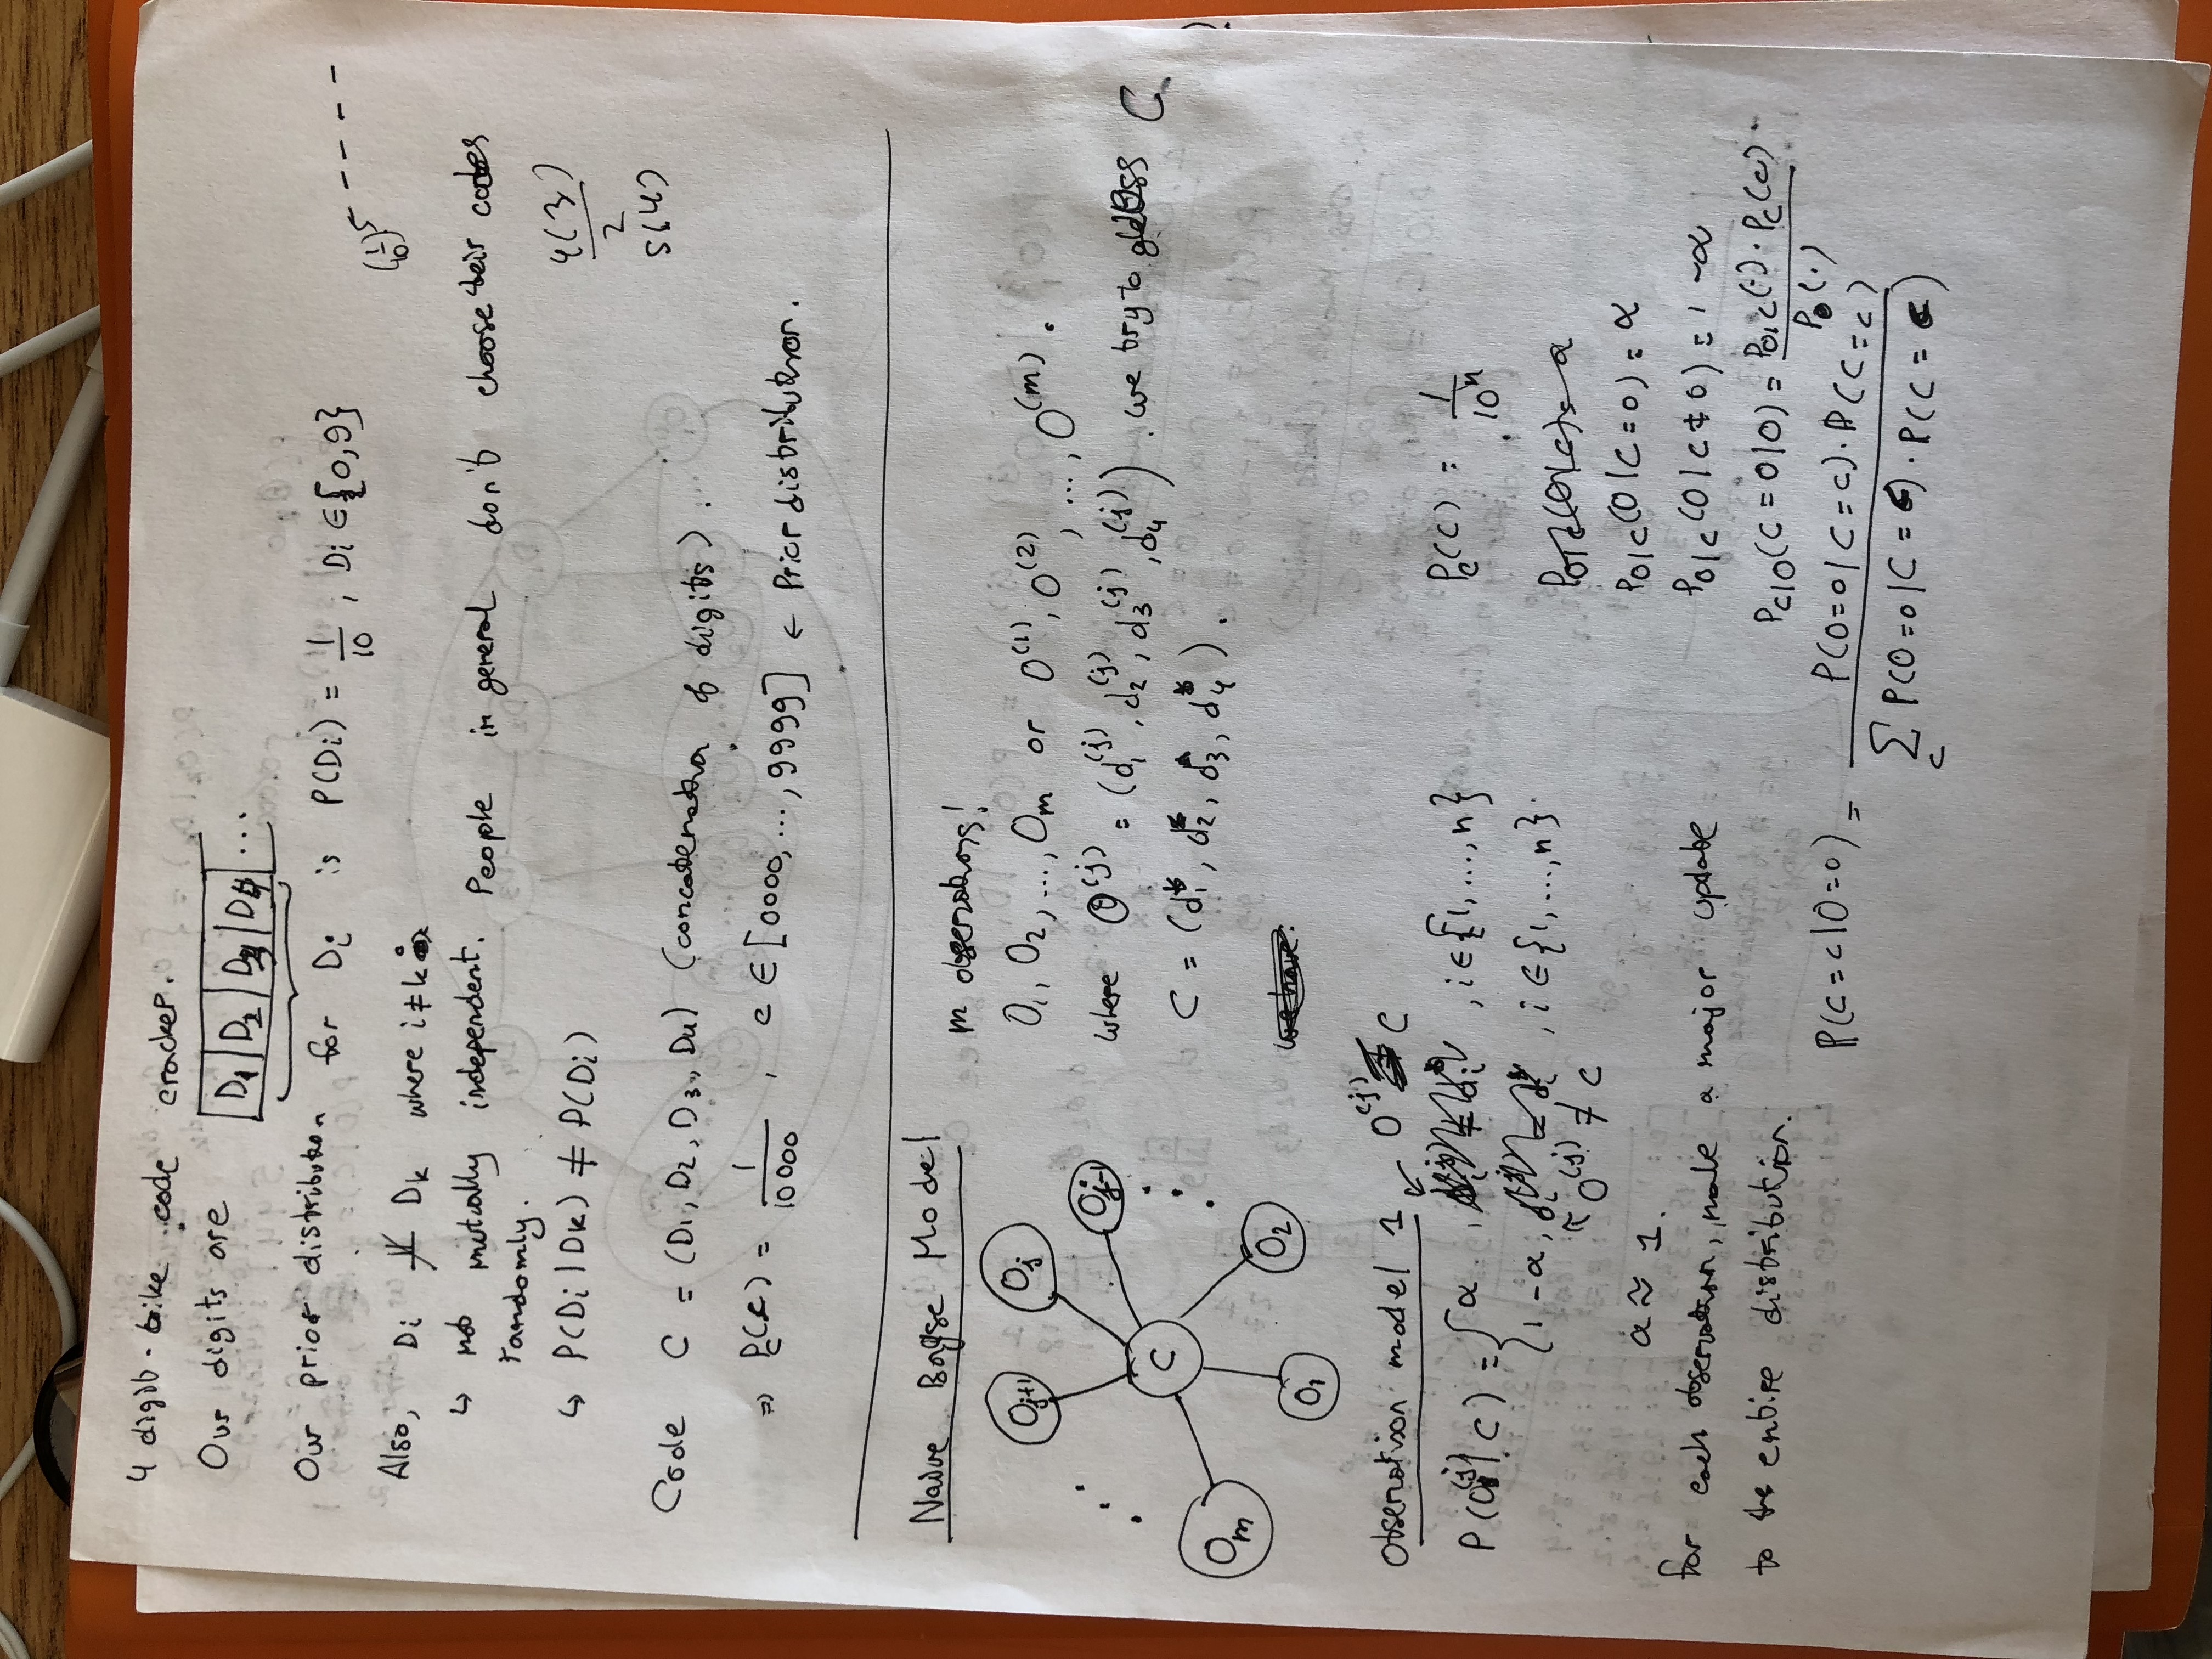 4 digit - bike code cracker.
Our digits are D1 | D2 | D3 | D4 | ...
Our prior distribution for Di is P(Di) = 1/10 , Di ∈ {0,9}
(1/10)^5 - - - -
Also, Di ⫫̸ Dk where i ≠ k
↳ not mutually independent. People in general don't choose their codes
randomly.
↳ P(Di | Dk) ≠ P(Di)
4(3)/2
5(4)
Code C = (D1, D2, D3, D4) (concatenation of digits).
⇒ P_C(c) = 1/10000 , c ∈ [0000, ..., 9999] ← Prior distribution.
Naive Bayse Model
m observations!
O1, O2, ..., Om or O^(1), O^(2), ..., O^(m).
where O^(j) = (d1^(j), d2^(j), d3^(j), d4^(j)). we try to guess C
C = (d1*, d2*, d3*, d4*).
we have:
Oj+1 Oj
Oj-1
C
Om
O2
O1
Observation model 1
O^(j) = C
P(O^(j) | C) = { α , i ∈ {1, ..., n}
1 - α , i ∈ {1, ..., n}.
↑ O^(j) ≠ C
α ≈ 1.
for each observation, make a major update
to the entire distribution.
P_C(C) = 1/10^n
P_O|C(O|C) = α
P_O|C(O | C = O) = α
P_O|C(O | C ≠ O) = 1 - α
P_C|O(C = O | O) = P_O|C(·) · P_C(C) / P_O(·)
P(C = c | O = o) = P(O = o | C = c) · P(C = c) / Σ_c P(O = o | C = c) · P(C = c)